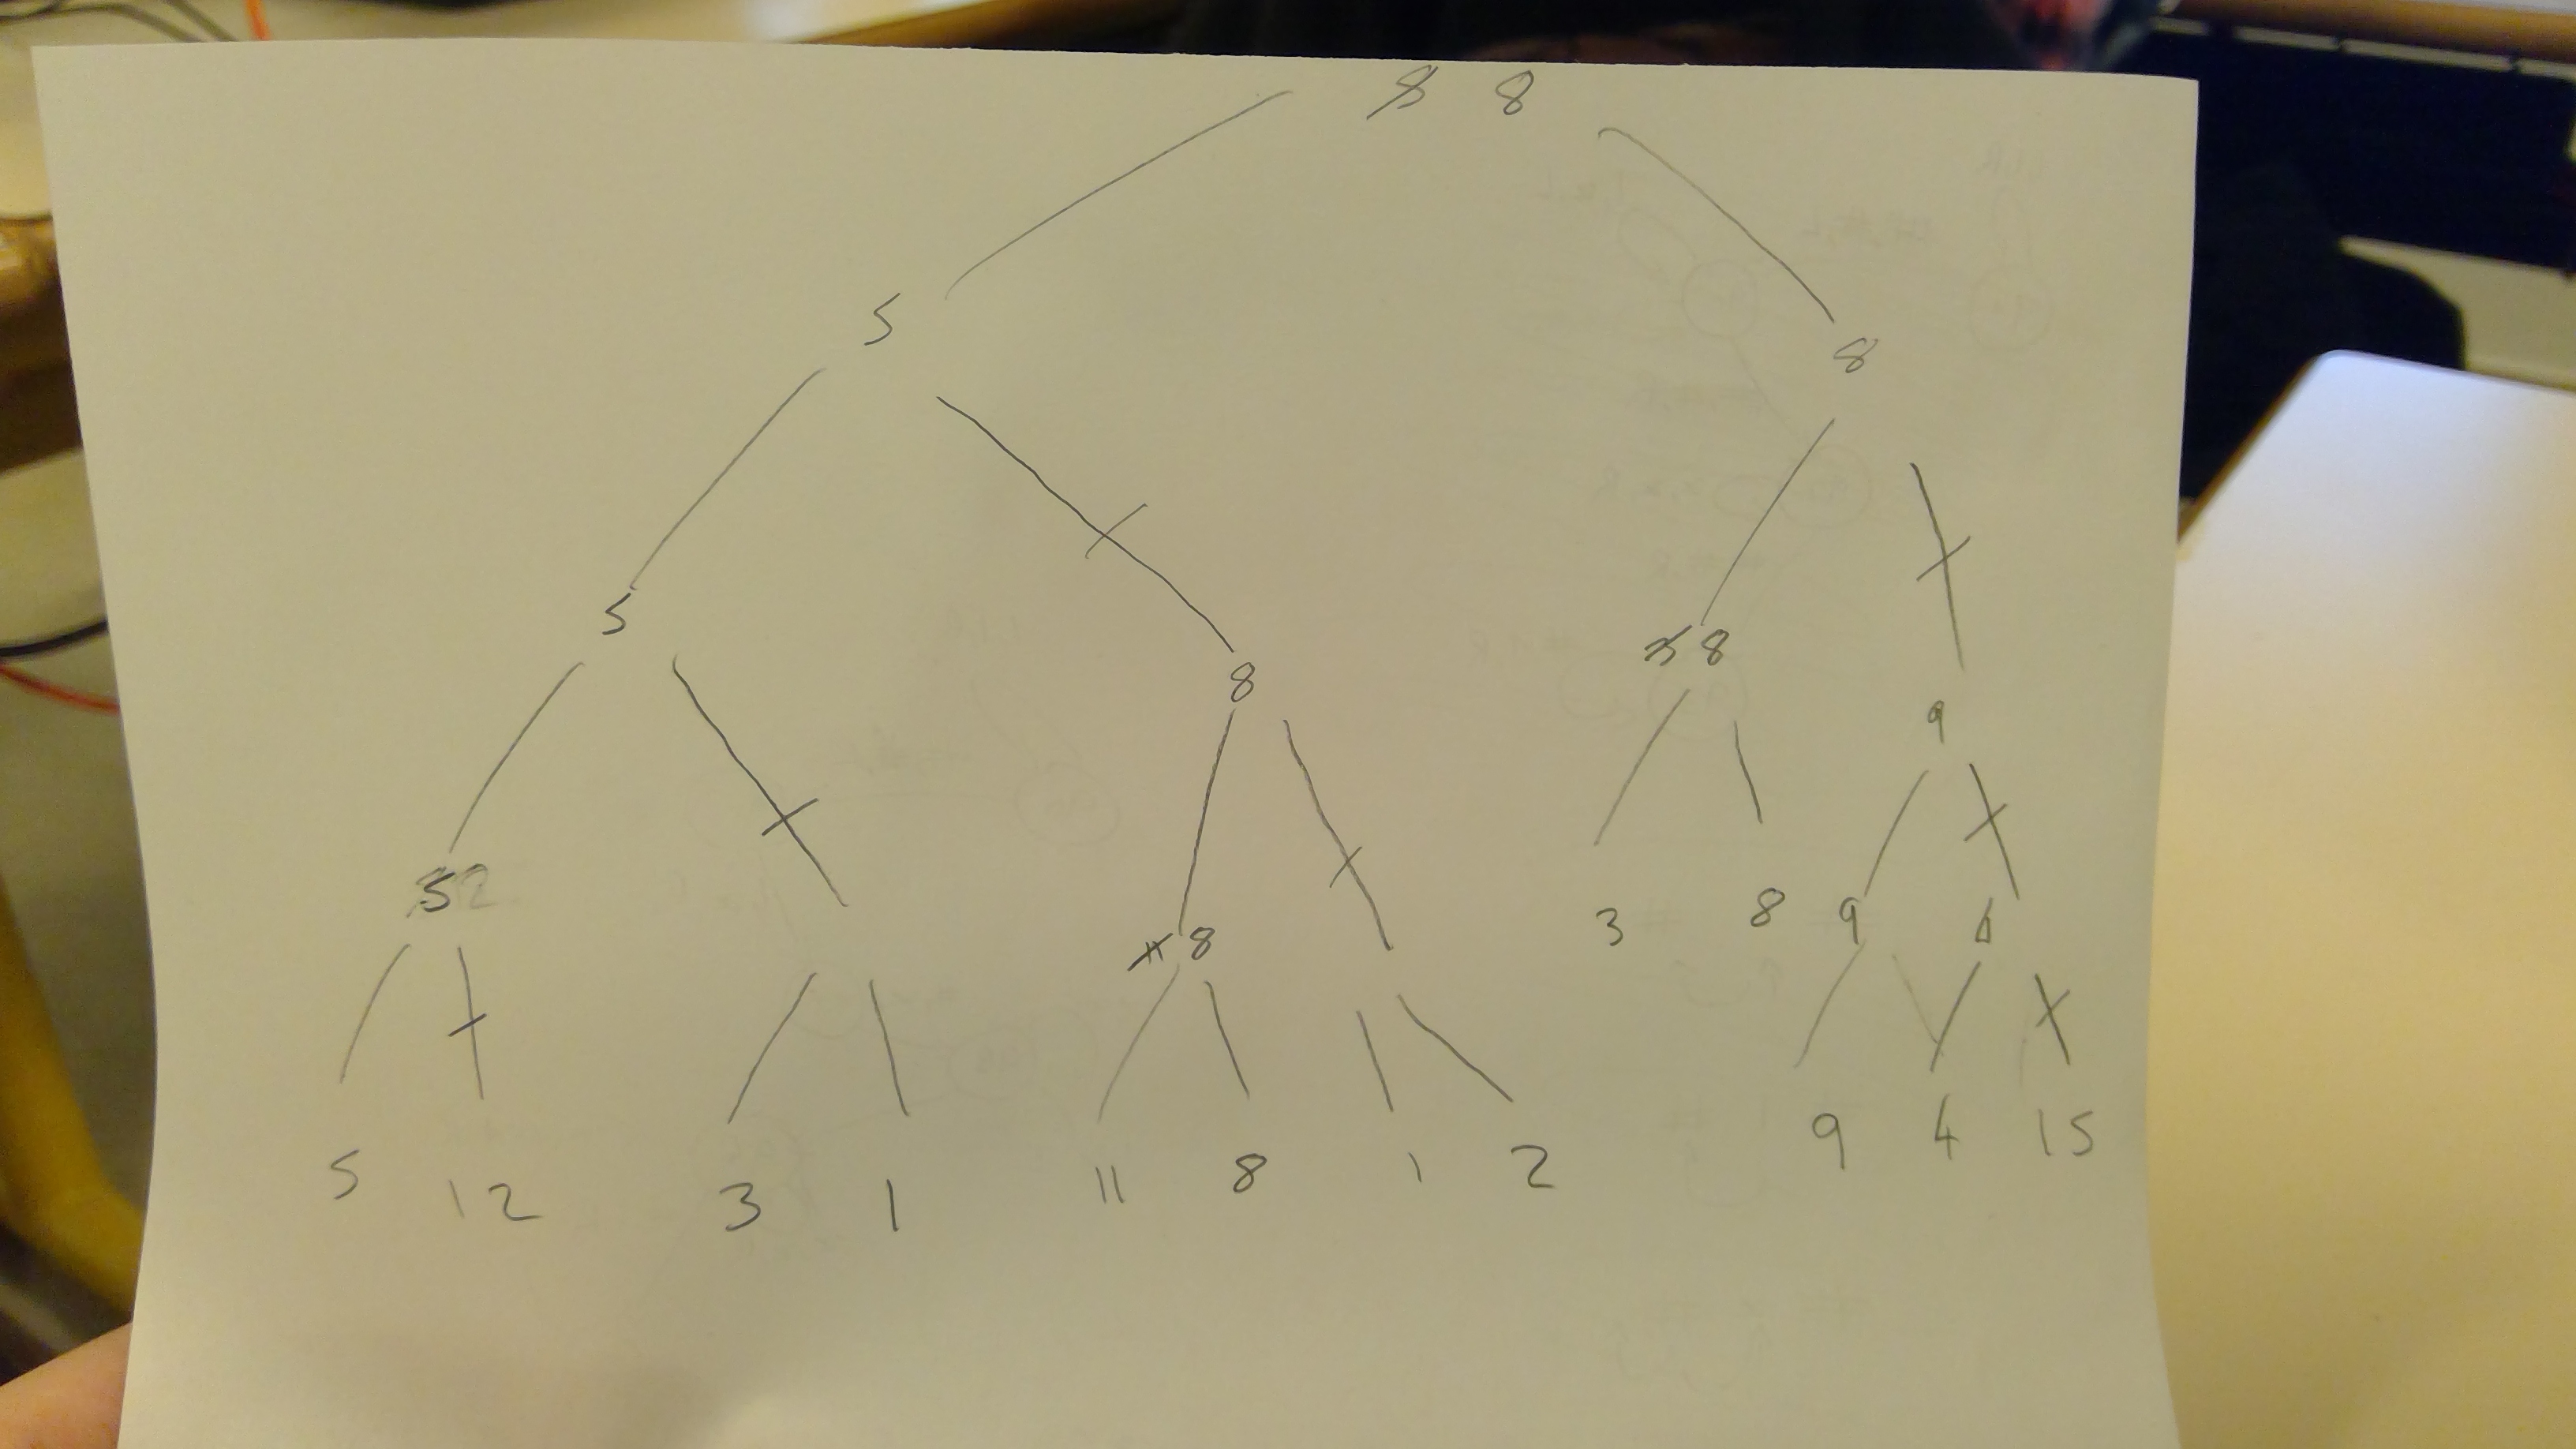 5 8
5 8
5 8 5 8
9
5 2 11 8 3 8 9 4
5 12 3 1 11 8 1 2 9 4 15